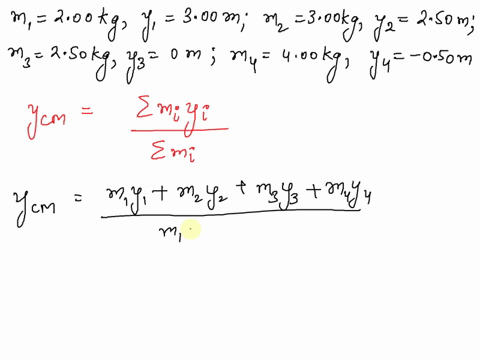 m₁ = 2.00 kg, y₁ = 3.00 m; m₂ = 3.00 kg, y₂ = 2.50 m;
m₃ = 2.50 kg, y₃ = 0 m; m₄ = 4.00 kg, y₄ = -0.50 m
y_CM = Σ mᵢ yᵢ / Σ mᵢ
y_CM = m₁y₁ + m₂y₂ + m₃y₃ + m₄y₄ / m₁